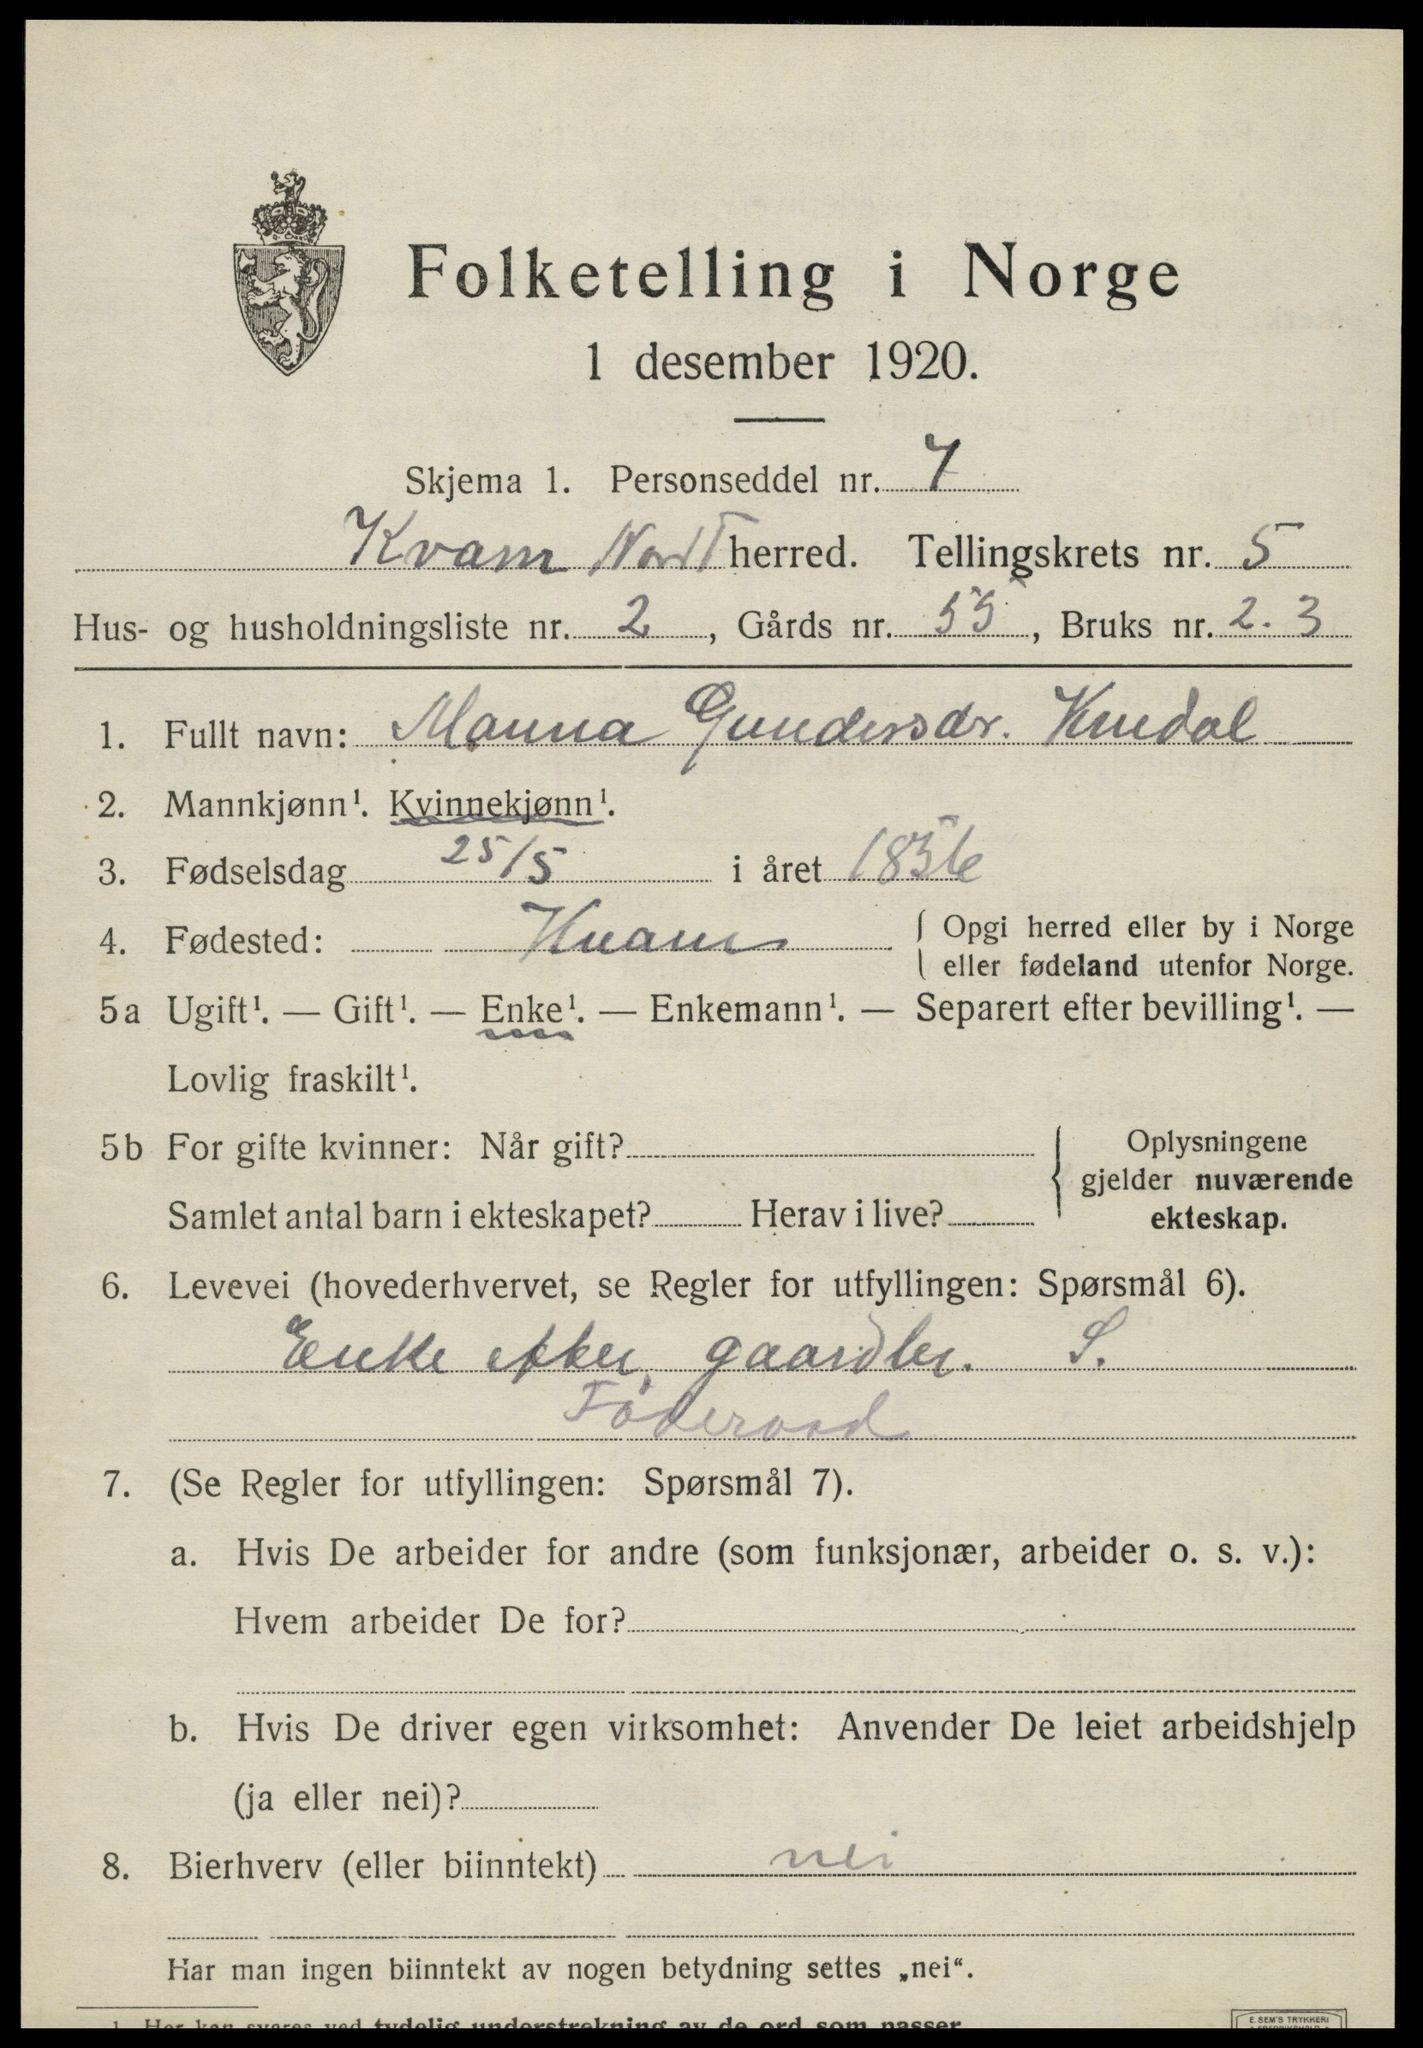 Folketelling i Norge
1 desember 1920.
Skjema 1. Personseddel nr. 7
Kvam Nord herred. Tellingskrets nr. 5
Hus- og husholdningsliste nr. 2, Gårds nr. 55, Bruks nr. 2. 3
1. Fullt navn: Gundersdr.
2. Mannkjønn¹. Kvinnekjønn¹.
3. Fødselsdag 25/5 i året 1836
4. Fødested: Kvam { Opgi herred eller by i Norge
eller fødeland utenfor Norge.
5a Ugift¹. — Gift¹. — Enke¹. — Enkemann¹. — Separert efter bevilling¹. —
Lovlig fraskilt¹.
5b For gifte kvinner: Når gift? { Oplysningene
gjelder nuværende
Samlet antal barn i ekteskapet? Herav i live? ekteskap.
6. Levevei (hovederhvervet, se Regler for utfyllingen: Spørsmål 6).
Enke efter gaardbr. S.
Føderaad
7. (Se Regler for utfyllingen: Spørsmål 7).
a. Hvis De arbeider for andre (som funksjonær, arbeider o. s. v.):
Hvem arbeider De for?
b. Hvis De driver egen virksomhet: Anvender De leiet arbeidshjelp
(ja eller nei)?
8. Bierhverv (eller biinntekt) nei
Har man ingen biinntekt av nogen betydning settes „nei“.
1 Her kan svares ved tydelig understrekning av de ord som passer.
E. SEM'S TRYKKERI